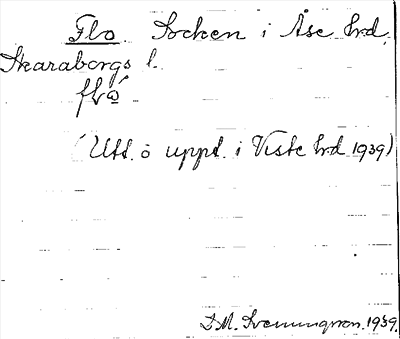 Flo Socken i Åse hrd.
Skaraborgs l.
flo
(Utt. o uppt. i Viste hrd 1939)
S.M. Svenningsson. 1939.